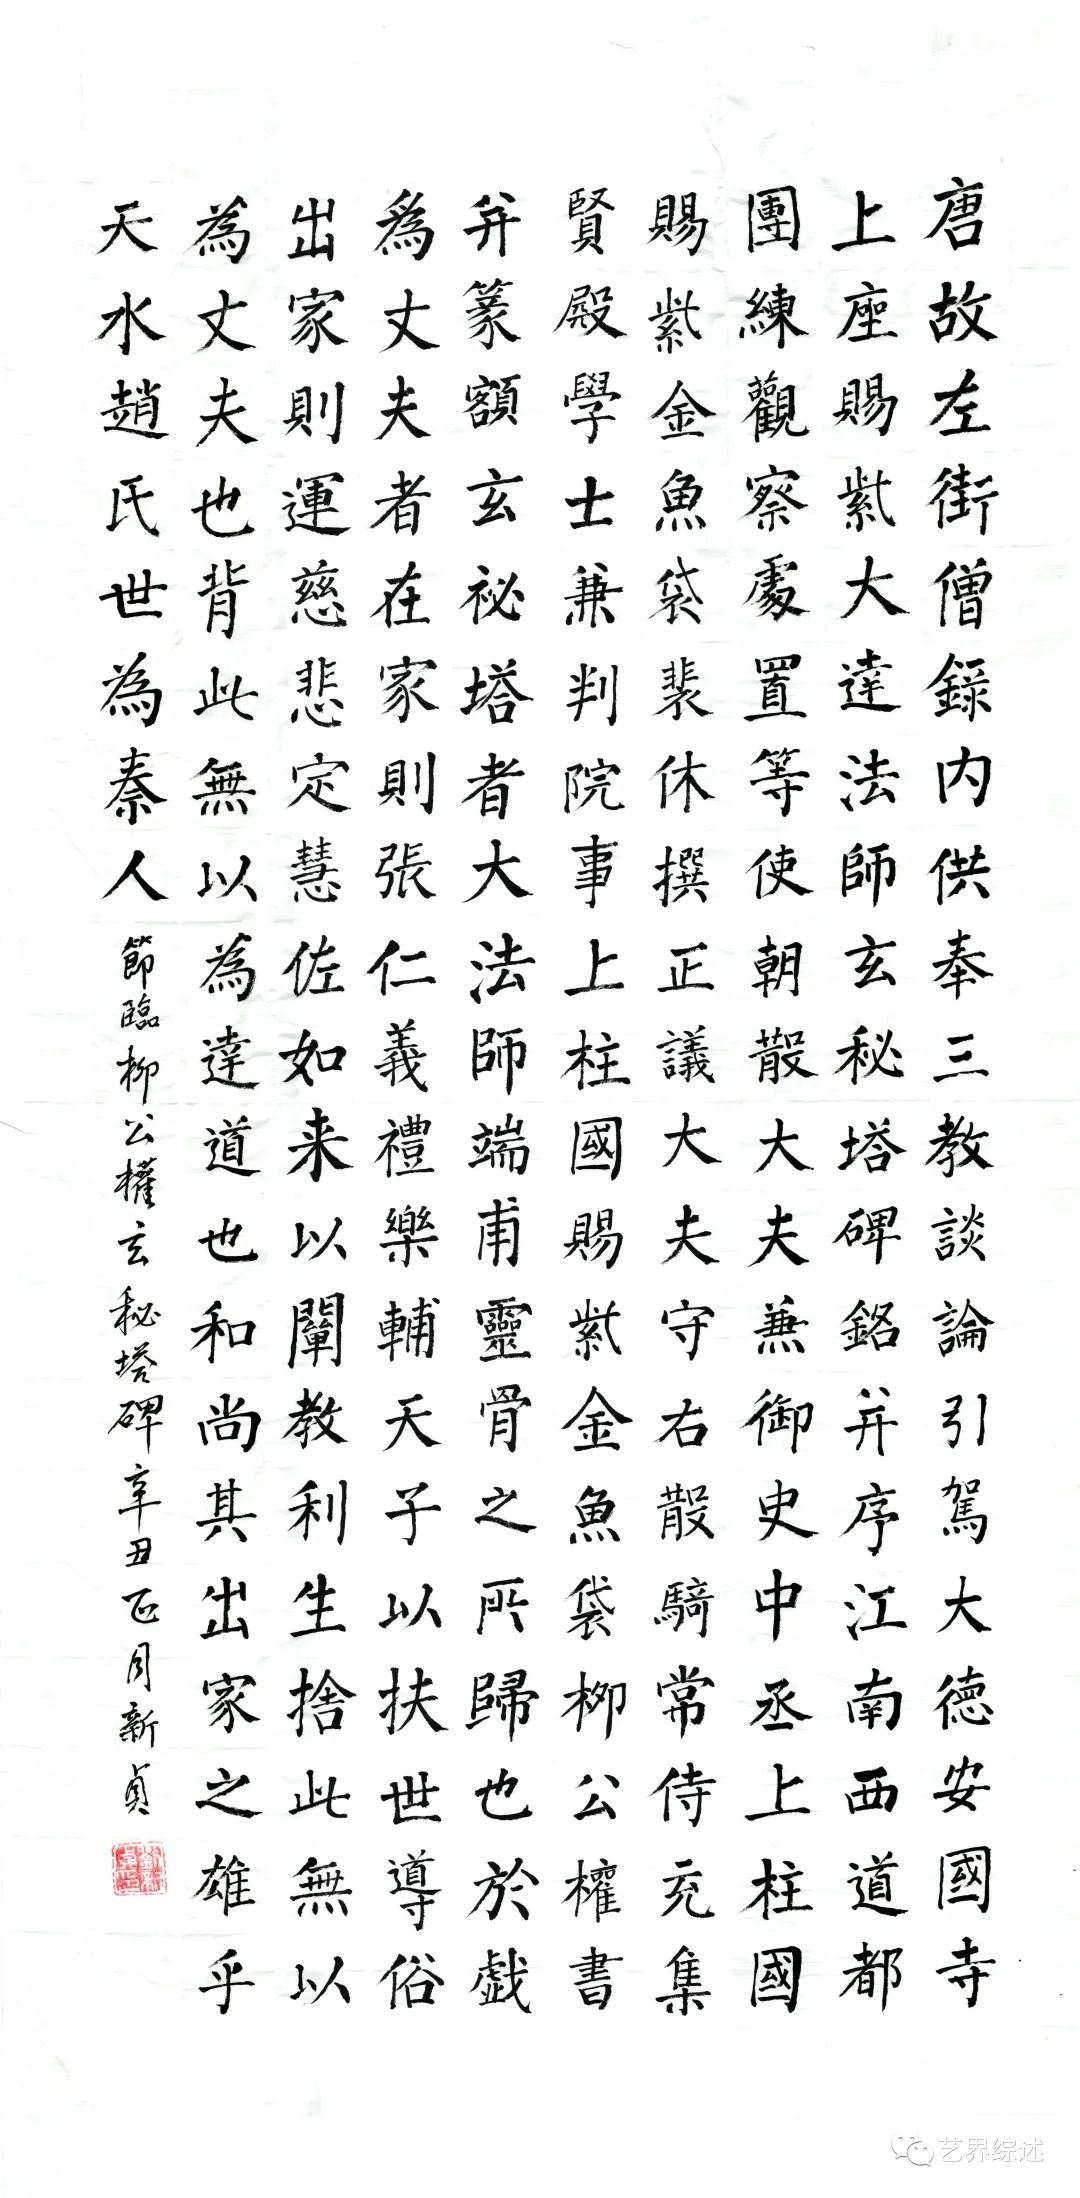 唐故左街僧錄内供奉三教談論引駕大德安國寺
上座賜紫大達法師玄秘塔碑銘并序江南西道都
團練觀察處置等使朝散大夫兼御史中丞上柱國
賜紫金魚袋裴休撰正議大夫守右散騎常侍充集
賢殿學士兼判院事上柱國賜紫金魚袋柳公權書
并篆額玄祕塔者大法師端甫靈骨之所歸也於戲
為丈夫者在家則張仁義禮樂輔天子以扶世導俗
出家則運慈悲定慧佐如来以闡教利生捨此無以
為丈夫也背此無以為達道也和尚其出家之雄乎
天水趙氏世為秦人
節臨柳公權玄秘塔碑辛丑正月新貞
艺界综述